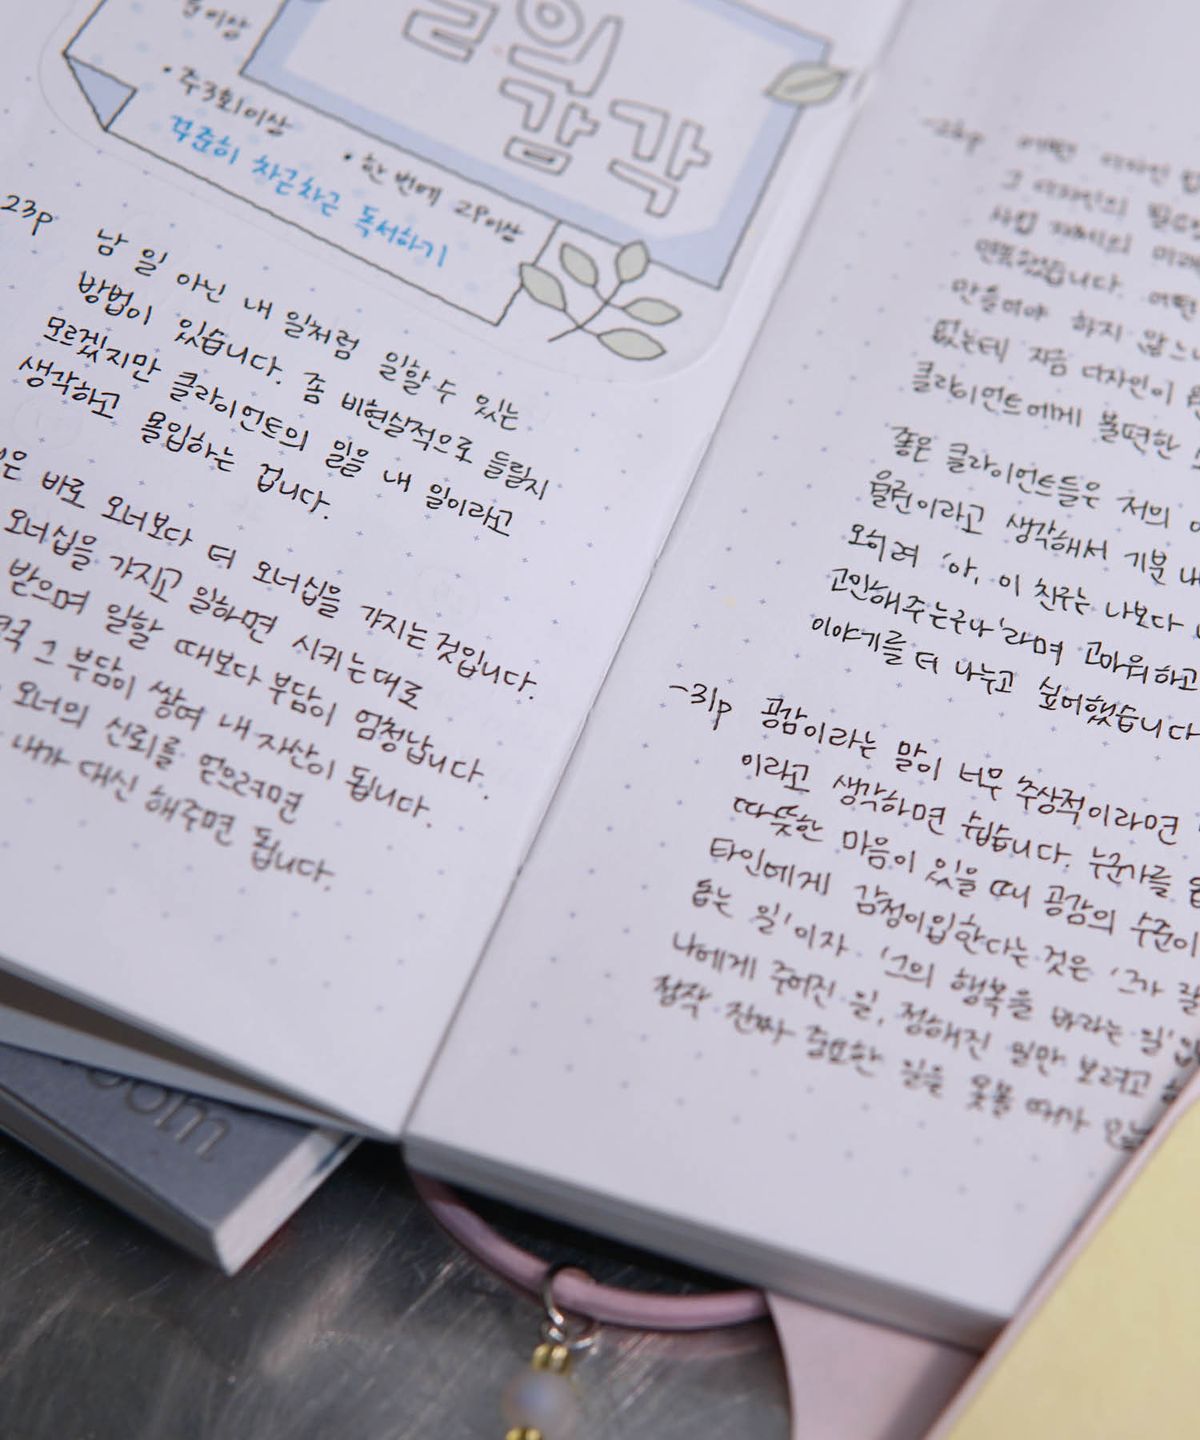 일의
감각
이상
• 주3회이상
• 한 번에 2P이상
꾸준히 차근차근 독서하기
23p 남 일 아닌 내 일처럼 일할 수 있는
방법이 있습니다. 좀 비현실적으로 들릴지
모르겠지만 클라이언트의 일을 내 일이라고
생각하고 몰입하는 겁니다.
은 바로 오너보다 더 오너십을 가지는 것입니다.
오너십을 가지고 일하면 시키는대로
받으며 일할 때보다 부담이 엄청납니다.
그 부담이 쌓여 내 자산이 됩니다.
오너의 신뢰를 얻으려면
내가 대신 해주면 됩니다.
-28p 어떤 디자인
그 디자인의 필요
사업 자체의 미래
만들어야 하지 않느냐
없는데 지금 디자인이
클라이언트에게 불편한
좋은 클라이언트들은 저의
월권이라고 생각해서 기분
오히려 '아, 이 친구는 나보다
고민해주는구나'라며 고마워하고
이야기를 더 나누고 싶어했습니다
-31p 공감이라는 말이 너무 추상적이라면
이라고 생각하면 쉽습니다. 누군가를
따뜻한 마음이 있을 때 공감의 수준이
타인에게 감정이입한다는 것은 '그가 잘
돕는 일'이자 '그의 행복을 바라는 일'입
나에게 주어진 일, 정해진 일만 보려고
정작 진짜 중요한 일을 못볼 때가
oom